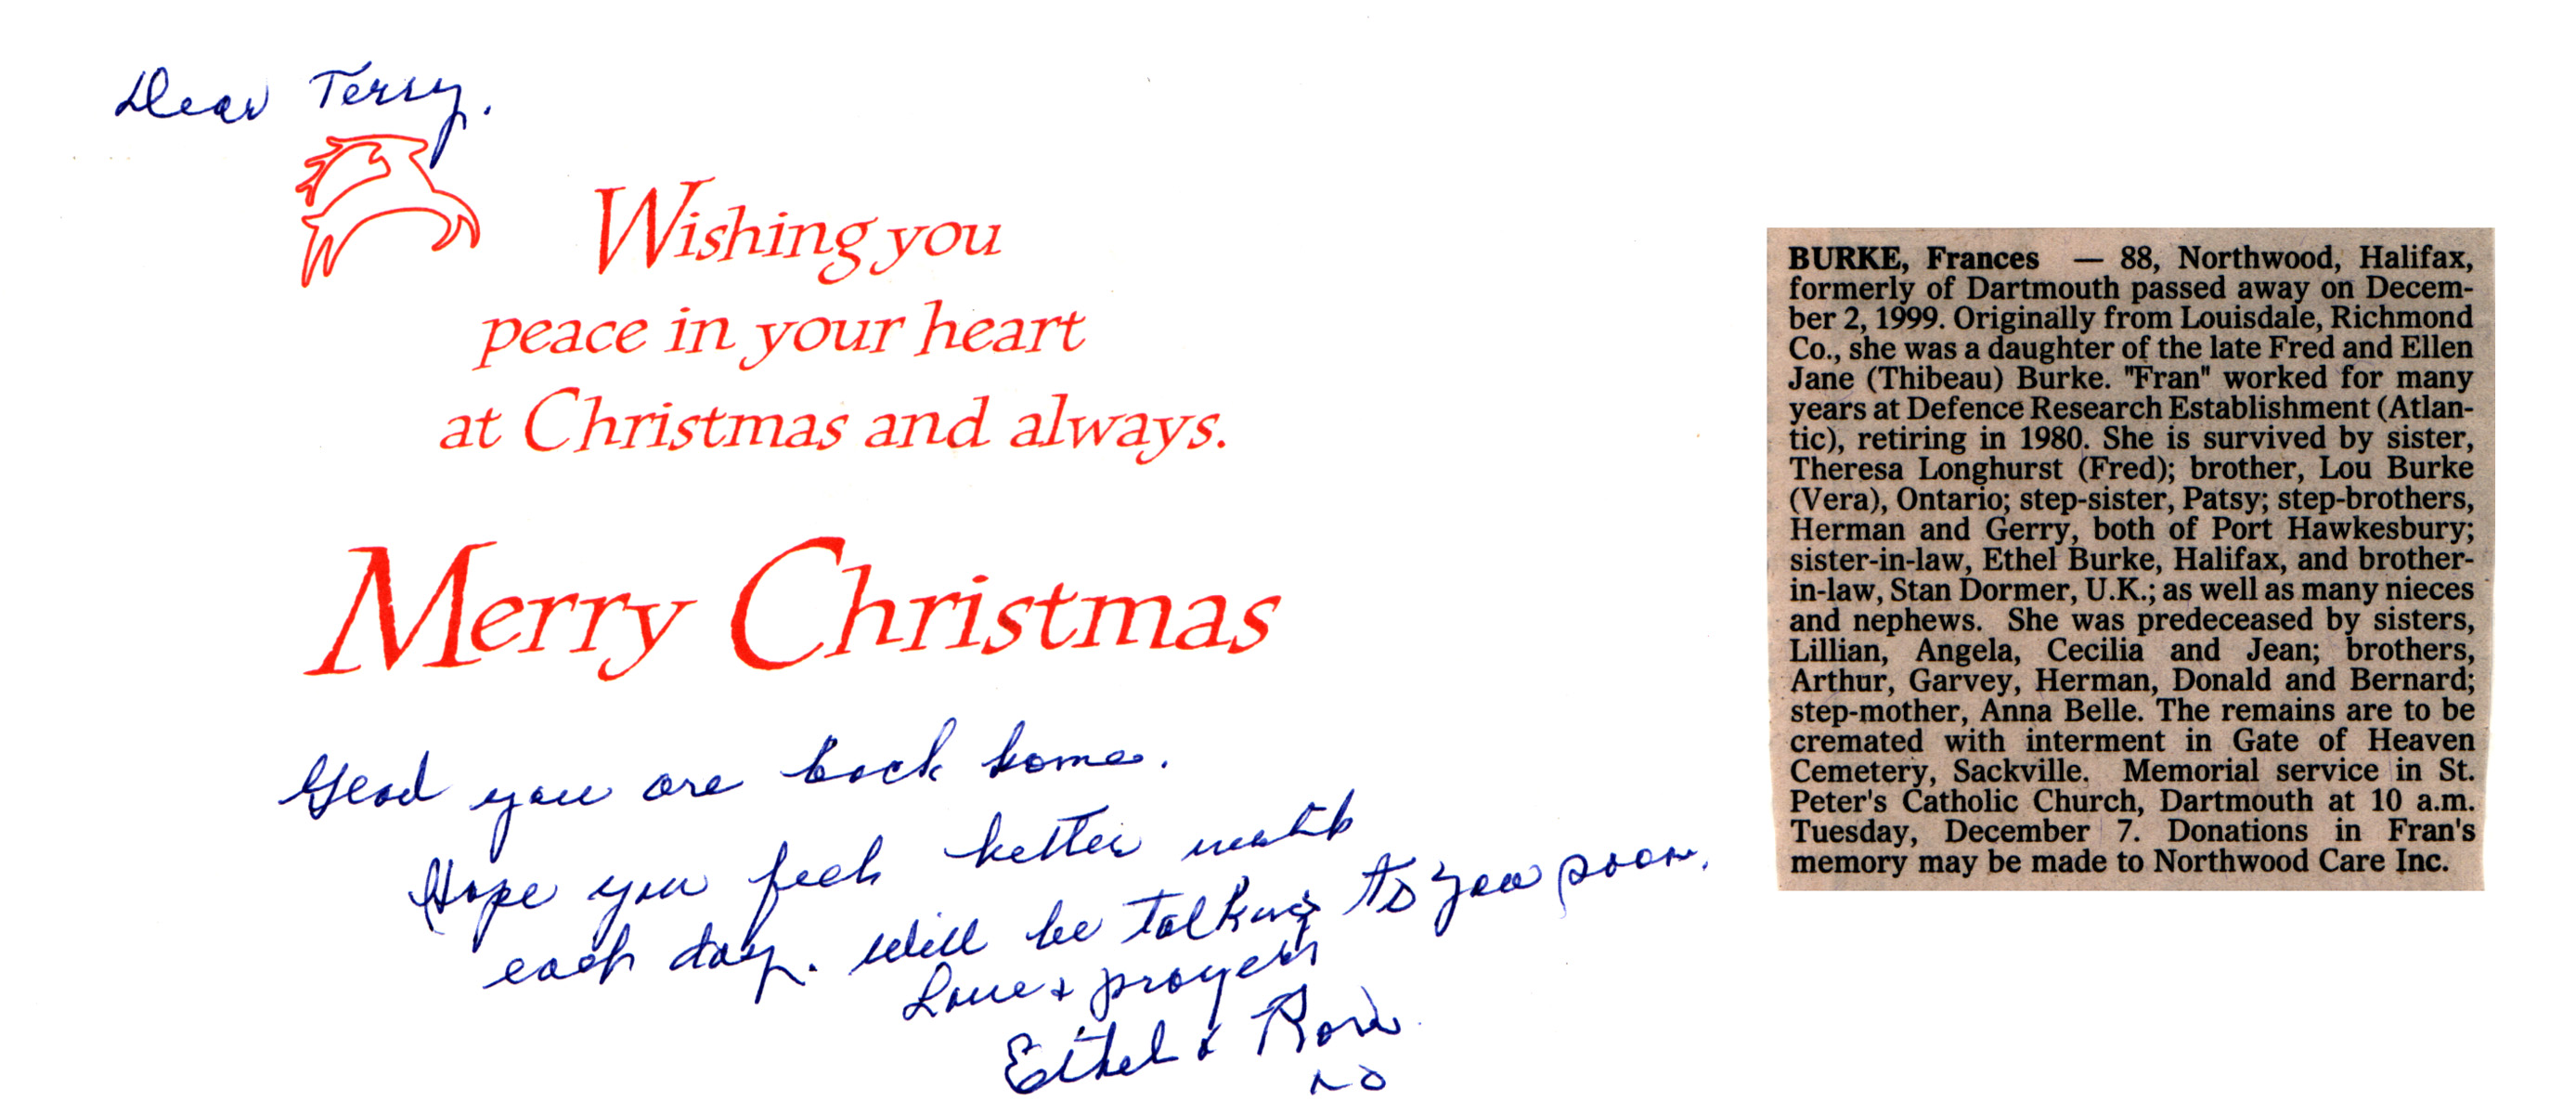 Dear Terry.
Wishing you
peace in your heart
at Christmas and always.
Merry Christmas
Glad you are back home.
Hope you feel better with
each day. Will be talking to you soon.
Love + prayers
Ethel &
BURKE, Frances — 88, Northwood, Halifax,
formerly of Dartmouth passed away on Decem-
ber 2, 1999. Originally from Louisdale, Richmond
Co., she was a daughter of the late Fred and Ellen
Jane (Thibeau) Burke. "Fran" worked for many
years at Defence Research Establishment (Atlan-
tic), retiring in 1980. She is survived by sister,
Theresa Longhurst (Fred); brother, Lou Burke
(Vera), Ontario; step-sister, Patsy; step-brothers,
Herman and Gerry, both of Port Hawkesbury;
sister-in-law, Ethel Burke, Halifax, and brother-
in-law, Stan Dormer, U.K.; as well as many nieces
and nephews. She was predeceased by sisters,
Lillian, Angela, Cecilia and Jean; brothers,
Arthur, Garvey, Herman, Donald and Bernard;
step-mother, Anna Belle. The remains are to be
cremated with interment in Gate of Heaven
Cemetery, Sackville. Memorial service in St.
Peter's Catholic Church, Dartmouth at 10 a.m.
Tuesday, December 7. Donations in Fran's
memory may be made to Northwood Care Inc.